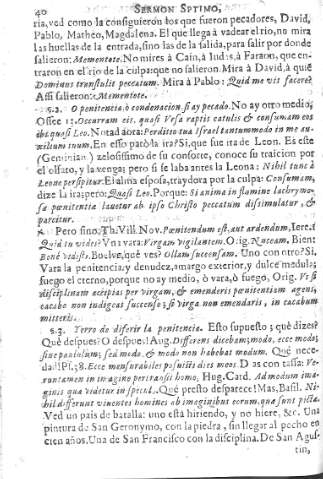 40 SERMON SPTIMO,
ria, ved como la consiguieron los que fueron pecadores, David,
Pablo, Matheo, Magdalena. El que llegà à vadear el rio, no mira
las huellas de la entrada, sino las de la salida, para salir por donde
salieron: Mementote. No mires à Cain, à Iudas, à Faraon, que en-
traron en el rio de la culpa: que no salieron. Mira à David, à quiē
Dominus transtulit peccatum. Mira à Pablo: Quid me vis facere?
Assi salieron: Mementote.
5.2. O penitencia, ò condenacion, si ay pecado. No ay otro medio;
Osee 13. Occurram eis, quasi Vrsa raptis catulis & consumam eos
ibi, quasi Leo. Notad aora: Perditio tua Israel tantummodo in me au-
xilium tuum. En esso patò la ira? Si, que fue ira de Leon. Es este
(Geminian) zelosissimo de su consorte, conoce su traicion por
el olfato, y la venga; pero si se laba antes la Leona: Nihil tunc à
Leone perspitur. El alma esposa, traydora por la culpa: Consumam,
dize la ira; pero; Quasi Leo. Porque: Si anima in flamine lachrymo-
sæ pœnitentiæ lauetur ab ipso Christo peccatum dissimulatur, &
parcitur.
Pero fino, Th. Vill. Nov. Pœnitendum est, aut ardendum, Iere.1
Quid tu vides? Vna vara: Virgam vigilantem. Orig. Nuceam, Bien:
Bené vidisti. Bolue, què ves? Ollam succensam. Uno con otro? Si,
Vara la penitencia, y denudez, amargo exterior, y dulce medula;
fuego el eterno, porque no ay medio, ò vara, ò fuego, Orig. Vt si
disciplinam accipias per virgam, & emenderis pœnitentiam agens,
cacabo non indigeas succenso; si virga non emendaris, in cacabum
mitteris.
5.3. Yerro de diferir la penitencia. Esto supuesto; què dizes?
Què despues? O despues! Aug. Differens dicebam; modo, ecce modo;
sine paululum; sed modo, & modo non habebat modum. Què nece-
dad! Ps. 38. Ecce mensurabiles posuisti dies meos Das con tassa: Ve-
runtamen in imagine pertransit homo, Hug. Card. Ad modum ima-
ginis qua videtur in specul. Què presto desparece! Mas, Basil. Ni-
hil differunt viuentes homines ab imaginibus eorum, quæ sunt pictæ.
Ved un pais de batalla: uno està hiriendo, y no hiere, &c. Una
pintura de San Geronymo, con la piedra, sin llegar al pecho en
cien años. Una de San Francisco con la disciplina. De San Agus-
tin,